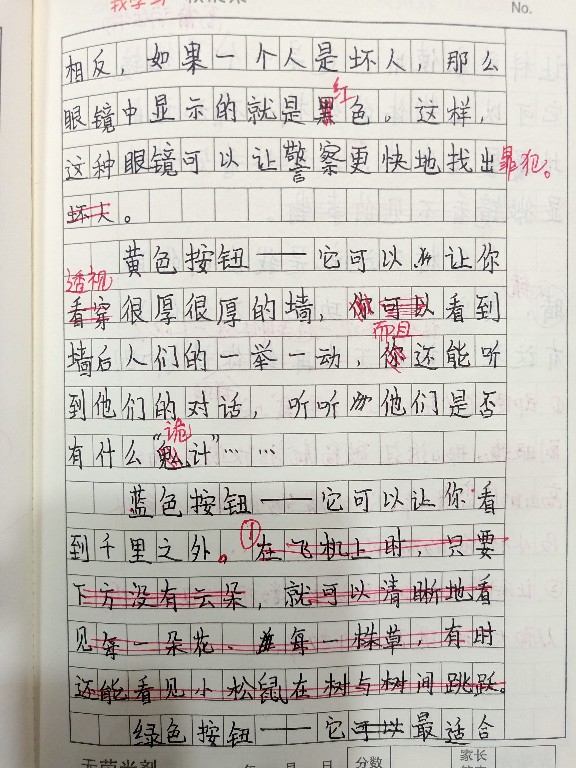 我学习
No.
相反，如果一个人是坏人，那么
红
眼镜中显示的就是黑色。这样
这种眼镜可以让警察更快地找出罪犯。
坏人。
黄色按钮——它可以让你
透视
看穿很厚很厚的墙，你可以看到
而且
墙后人们的一举一动，你还能听
到他们的对话，听听他们是否
诡
有什么“鬼计”……
蓝色按钮——它可以让你看
到千里之外。①在飞机上时，只要
下方没有云朵，就可以清晰地看
见每一朵花、每一株草，有时
还能看见小松鼠在树与树间跳跃。
绿色按钮——它可以最适合
年 月 日 分数 家长